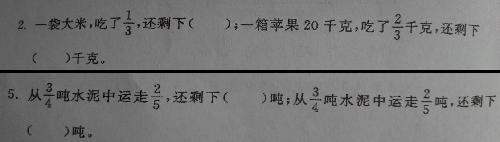 2. 一袋大米,吃了1/3,还剩下(    );一箱苹果 20 千克,吃了2/3千克,还剩下
(    )千克。
5. 从3/4吨水泥中运走2/5,还剩下(    )吨;从3/4吨水泥中运走2/5吨,还剩下
(    )吨。